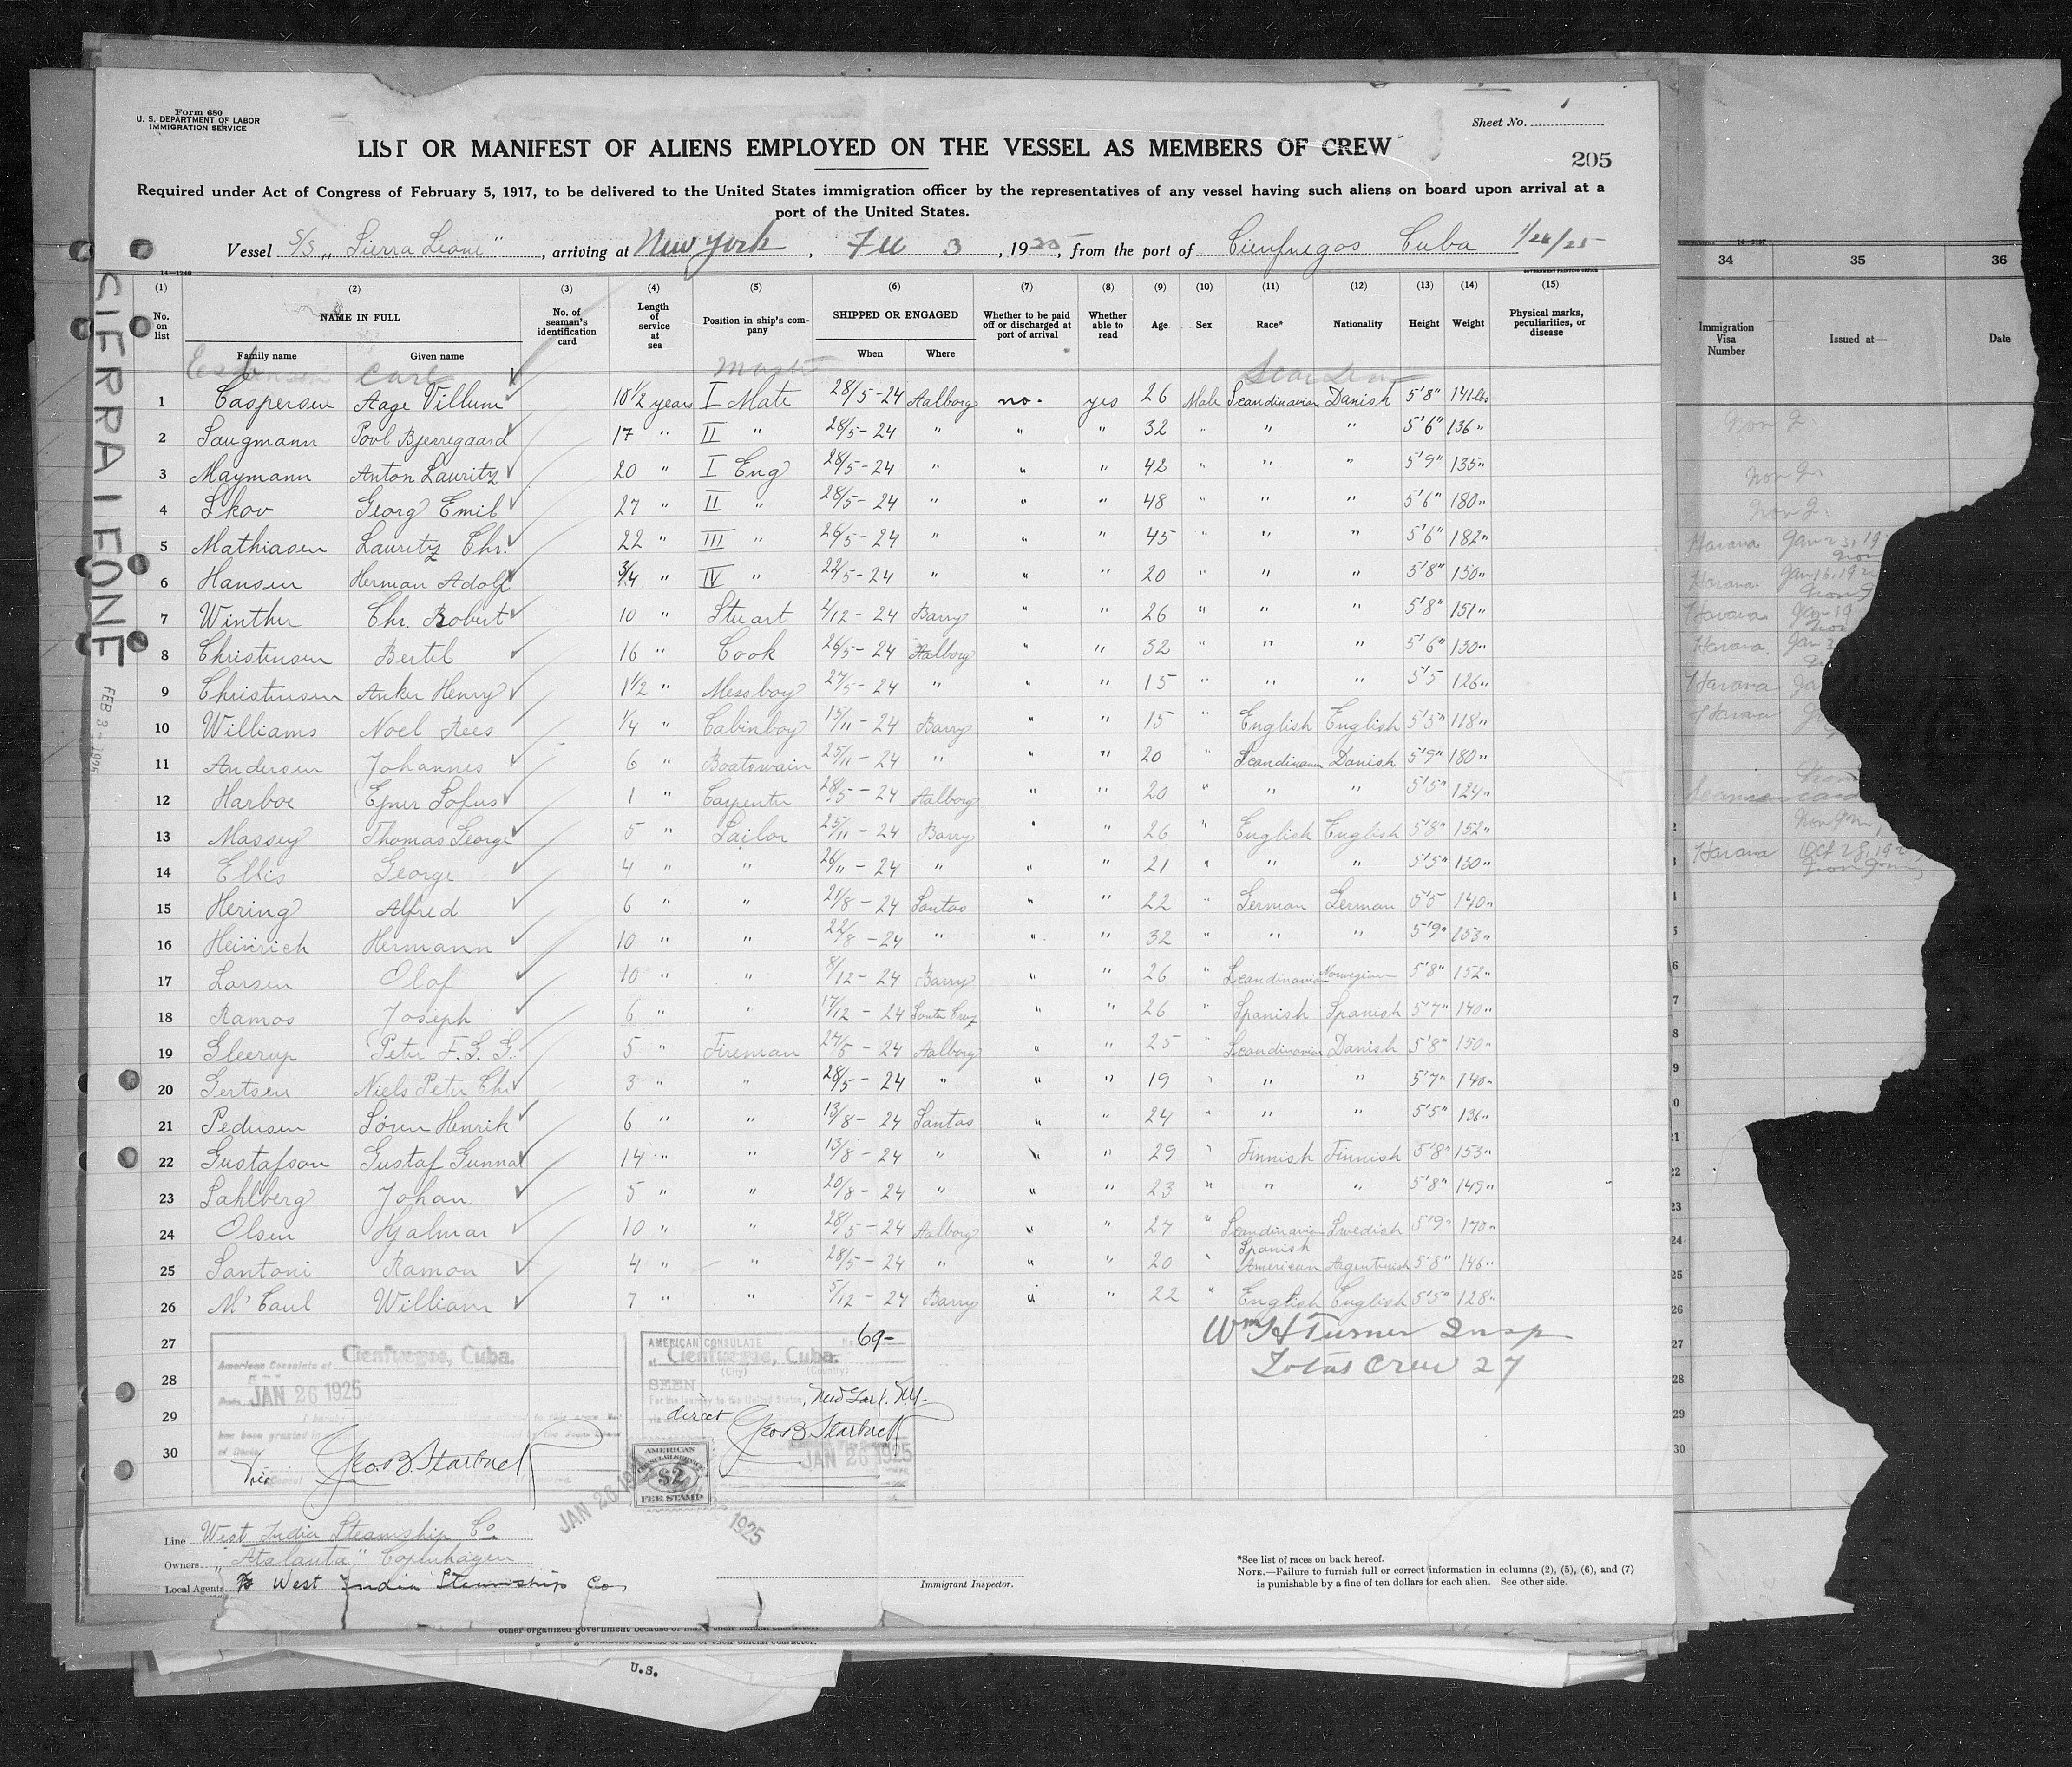 Form 680
U. S. DEPARTMENT OF LABOR
IMMIGRATION SERVICE
Sheet No.
LIST OR MANIFEST OF ALIENS EMPLOYED ON THE VESSEL AS MEMBERS OF CREW
205
Required under Act of Congress of February 5, 1917, to be delivered to the United States immigration officer by the representatives of any vessel having such aliens on board upon arrival at a
port of the United States.
Vessel S/S „Sierra Leone", arriving at New York, 3, 1925, from the port of Cienfuegos Cuba 1/26/25
14—1240
GOVERNMENT PRINTING OFFICE
(1) (2) (3) (4) (5) (6) (7) (8) (9) (10) (11) (12) (13) (14) (15)
No. on list NAME IN FULL No. of seaman's identification card Length of service at sea Position in ship's company SHIPPED OR ENGAGED Whether to be paid off or discharged at port of arrival Whether able to read Age Sex Race* Nationality Height Weight Physical marks, peculiarities, or disease
Family name Given name When Where
Carl Master
1 Caspersen Aage Villum 10½ years I Mate 28/5-24 Aalborg no. yes 26 Male Scandinavian Danish 5'8" 141 lbs
2 Saugmann Povl Bjerregaard 17 " II " 28/5-24 " " " 32 " " " 5'6" 136"
3 Maymann Anton Lauritz 20 " I Eng 28/5-24 " " " 42 " " " 5'9" 135"
4 Skov Georg Emil 27 " II " 28/5-24 " " " 48 " " " 5'6" 180"
5 Mathiasen Lauritz Chr. 22 " III " 26/5-24 " " " 45 " " " 5'6" 182"
6 Hansen Herman Adolf 3/4 " IV " 22/5-24 " " " 20 " " " 5'8" 150"
7 Winther Chr. Robert 10 " Stuart 2/12-24 Barry " " 26 " " " 5'8" 151"
8 Christensen Bertel 16 " Cook 26/5-24 Aalborg " " 32 " " " 5'6" 130"
9 Christensen Anker Henry 1½ " Messboy 27/5-24 " " " 15 " " " 5'5 126"
10 Williams Noel Rees 1/4 " Cabinboy 15/11-24 Barry " " 15 " English English 5'3" 118"
11 Andersen Johannes 6 " Boatswain 25/11-24 " " " 20 " Scandinavian Danish 5'9" 180"
12 Harboe Ejner Sofus 1 " Carpenter 28/5-24 Aalborg " " 20 " " " 5'5" 124"
13 Massey Thomas George 5 " Sailor 25/11-24 Barry " " 26 " English English 5'8" 152"
14 Ellis George 4 " " 26/11-24 " " " 21 " " " 5'5" 130"
15 Hering Alfred 6 " " 21/8-24 Santos " " 22 " German German 5'5 140"
16 Heinrich Hermann 10 " " 22/8-24 " " " 32 " " " 5'9" 153"
17 Larsen Olof 10 " " 8/12-24 Barry " " 26 " Scandinavian Norwegian 5'8" 152"
18 Ramos Joseph 6 " " 17/12-24 Santa Cruz " " 26 " Spanish Spanish 5'7" 140"
19 Gleerup Peter F. G. G. 5 " Fireman 27/5-24 Aalborg " " 25 " Scandinavian Danish 5'8" 150"
20 Gertsen Niels Peter Chr 3 " " 28/5-24 " " " 19 " " " 5'7" 140"
21 Pedersen Søren Henrik 6 " " 13/8-24 Santos " " 24 " " " 5'5" 136"
22 Gustafson Gustaf Gunnar 14 " " 13/8-24 " " " 29 " Finnish Finnish 5'8" 153"
23 Sahlberg Johan 5 " " 20/8-24 " " " 23 " " " 5'8" 149"
24 Olsen Hjalmar 10 " " 28/5-24 Aalborg " " 27 " Scandinavian Swedish 5'9" 170"
25 Santoni Ramon 4 " " 28/5-24 " " " 20 " Spanish American Argentinish 5'8" 146"
26 Mc Caul William 7 " " 5/12-24 Barry " " 22 " English English 5'5" 128"
27
28
29
30
Wm H Turner Insp
Total Crew 27
American Consulate at Cienfuegos, Cuba.
JAN 26 1925
Geo. B. Starbuck
AMERICAN CONSULATE No. 69-
at Cienfuegos, Cuba.
(City) (Country)
SEEN
For the journey to the United States
direct New York. N.Y.
Geo. B. Starbuck
JAN 26 1925
AMERICAN
CONSULAR SERVICE
$2
FEE STAMP
JAN 26 1925
Line West India Steamship Co
Owners „Atalanta" Copenhagen
Local Agents West India Steamship Co
Immigrant Inspector.
*See list of races on back hereof.
NOTE.—Failure to furnish full or correct information in columns (2), (5), (6), and (7)
is punishable by a fine of ten dollars for each alien. See other side.
SIERRA LEONE
FEB 3 - 1925
34 35 36
Immigration Visa Number Issued at— Date
Havana Jan 23, 19
Havana. Jan 16, 192
Havana Jan 19
Havana. Jan 3
Havana Ja
Havana
Havana Oct 28, 192
other organized government because of
U.S.